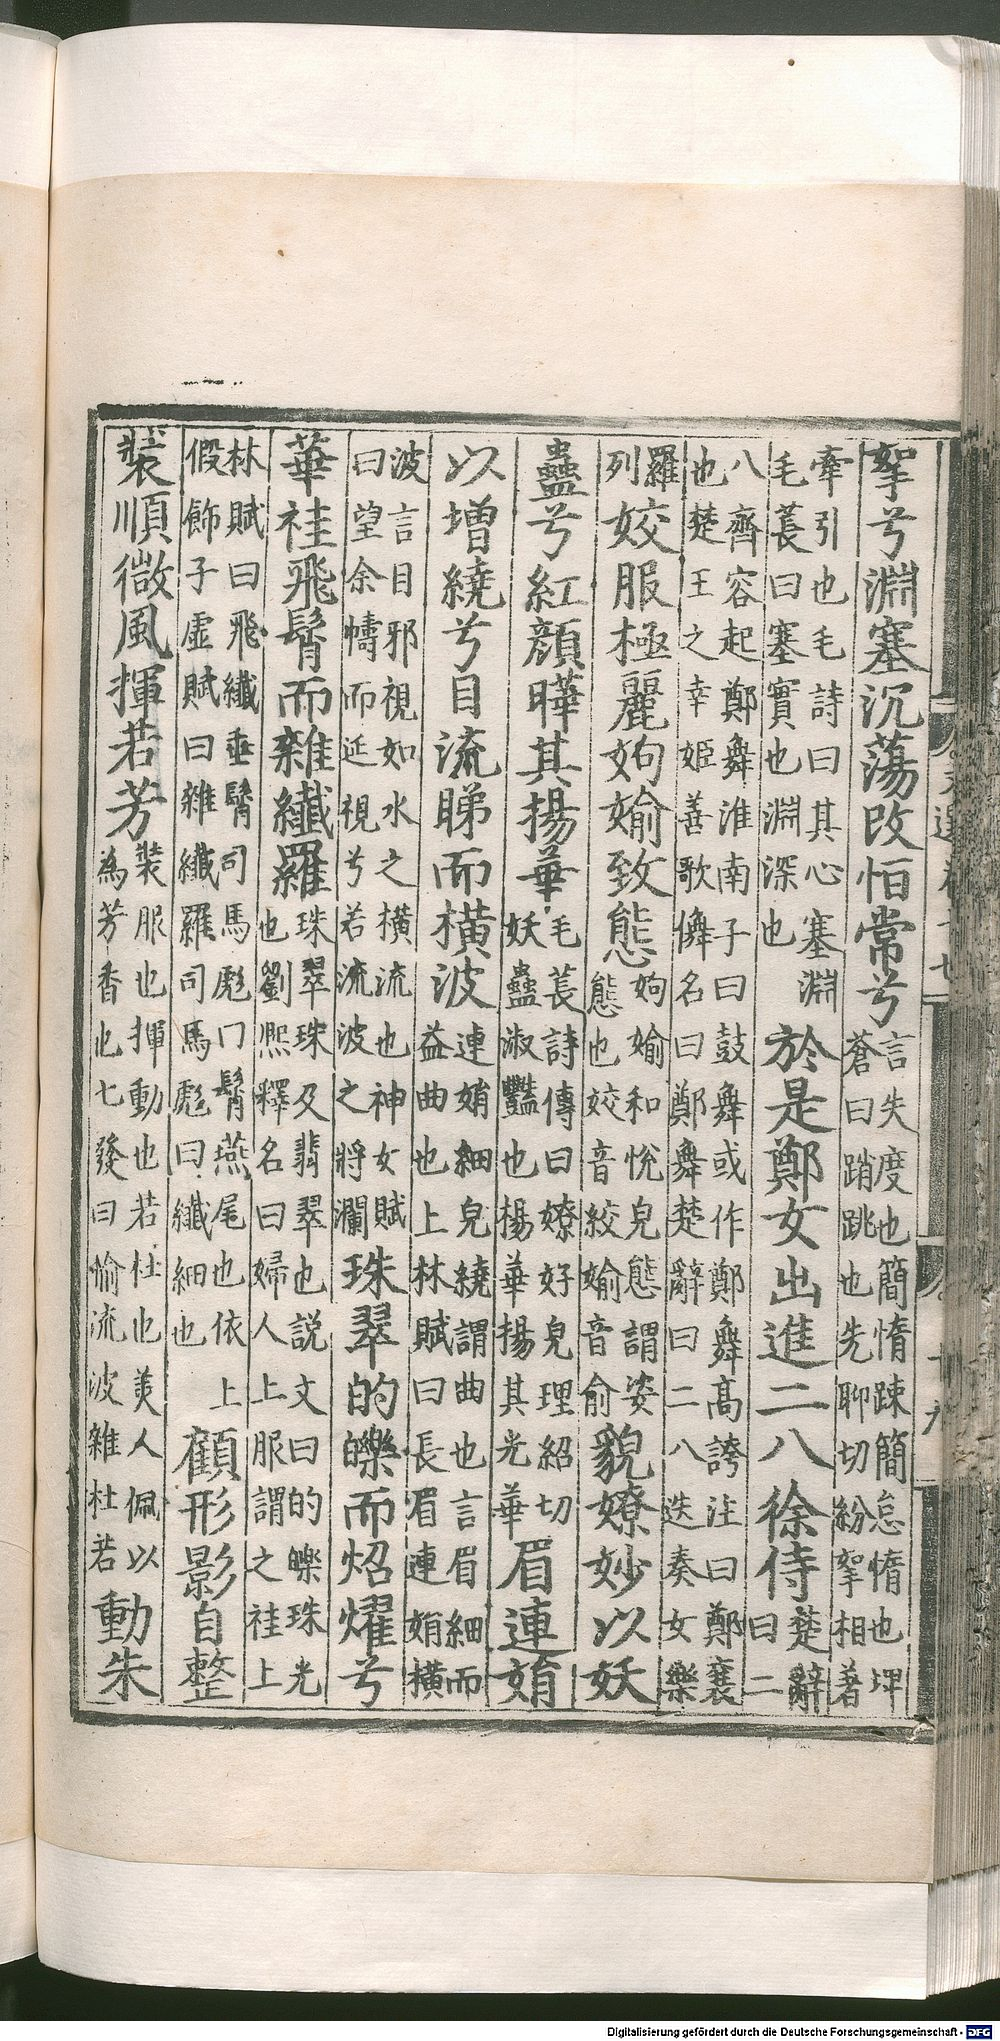 挐兮淵塞沉蕩改恒常兮言失度也簡惰疎簡怠惰也埤蒼曰踏跳也先聊切紛挐相著
牽引也毛詩曰其心塞淵毛萇曰塞實也淵深也於是鄭女出進二八徐侍楚辭曰二
八齊容起鄭舞淮南子曰鼓舞或作鄭舞高誘注曰鄭襄也楚王之幸姬善歌儛名曰鄭舞楚辭曰二八迭奏女樂
羅列姣服極麗姁媮致態姁媮和悅皃態謂姿態也姣音絞媮音俞貌嫽妙以妖
蠱兮紅顏曄其揚華毛萇詩傳曰嫽好皃理紹切妖蠱淑豔也楊華揚其光華眉連娟
以增繞兮目流睇而橫波連娟細皃繞謂曲也言眉細而益曲也上林賦曰長眉連娟橫
波言目邪視如水之橫流也神女賦曰望余幬而延視兮若流波之將瀾珠翠的皪而炤燿兮
華袿飛髾而雜纖羅珠翠珠及翡翠也說文曰的皪珠光也劉熙釋名曰婦人上服謂之袿上
林賦曰飛纖垂髾司馬彪曰髾燕尾也依上假飾子虛賦曰雜纖羅司馬彪曰纖細也顧形影自整
裝順微風揮若芳裝服也揮動也若杜也美人佩以為芳香也七發曰愉流波雜杜若動朱
十九
Digitalisierung gefördert durch die Deutsche Forschungsgemeinschaft - DFG